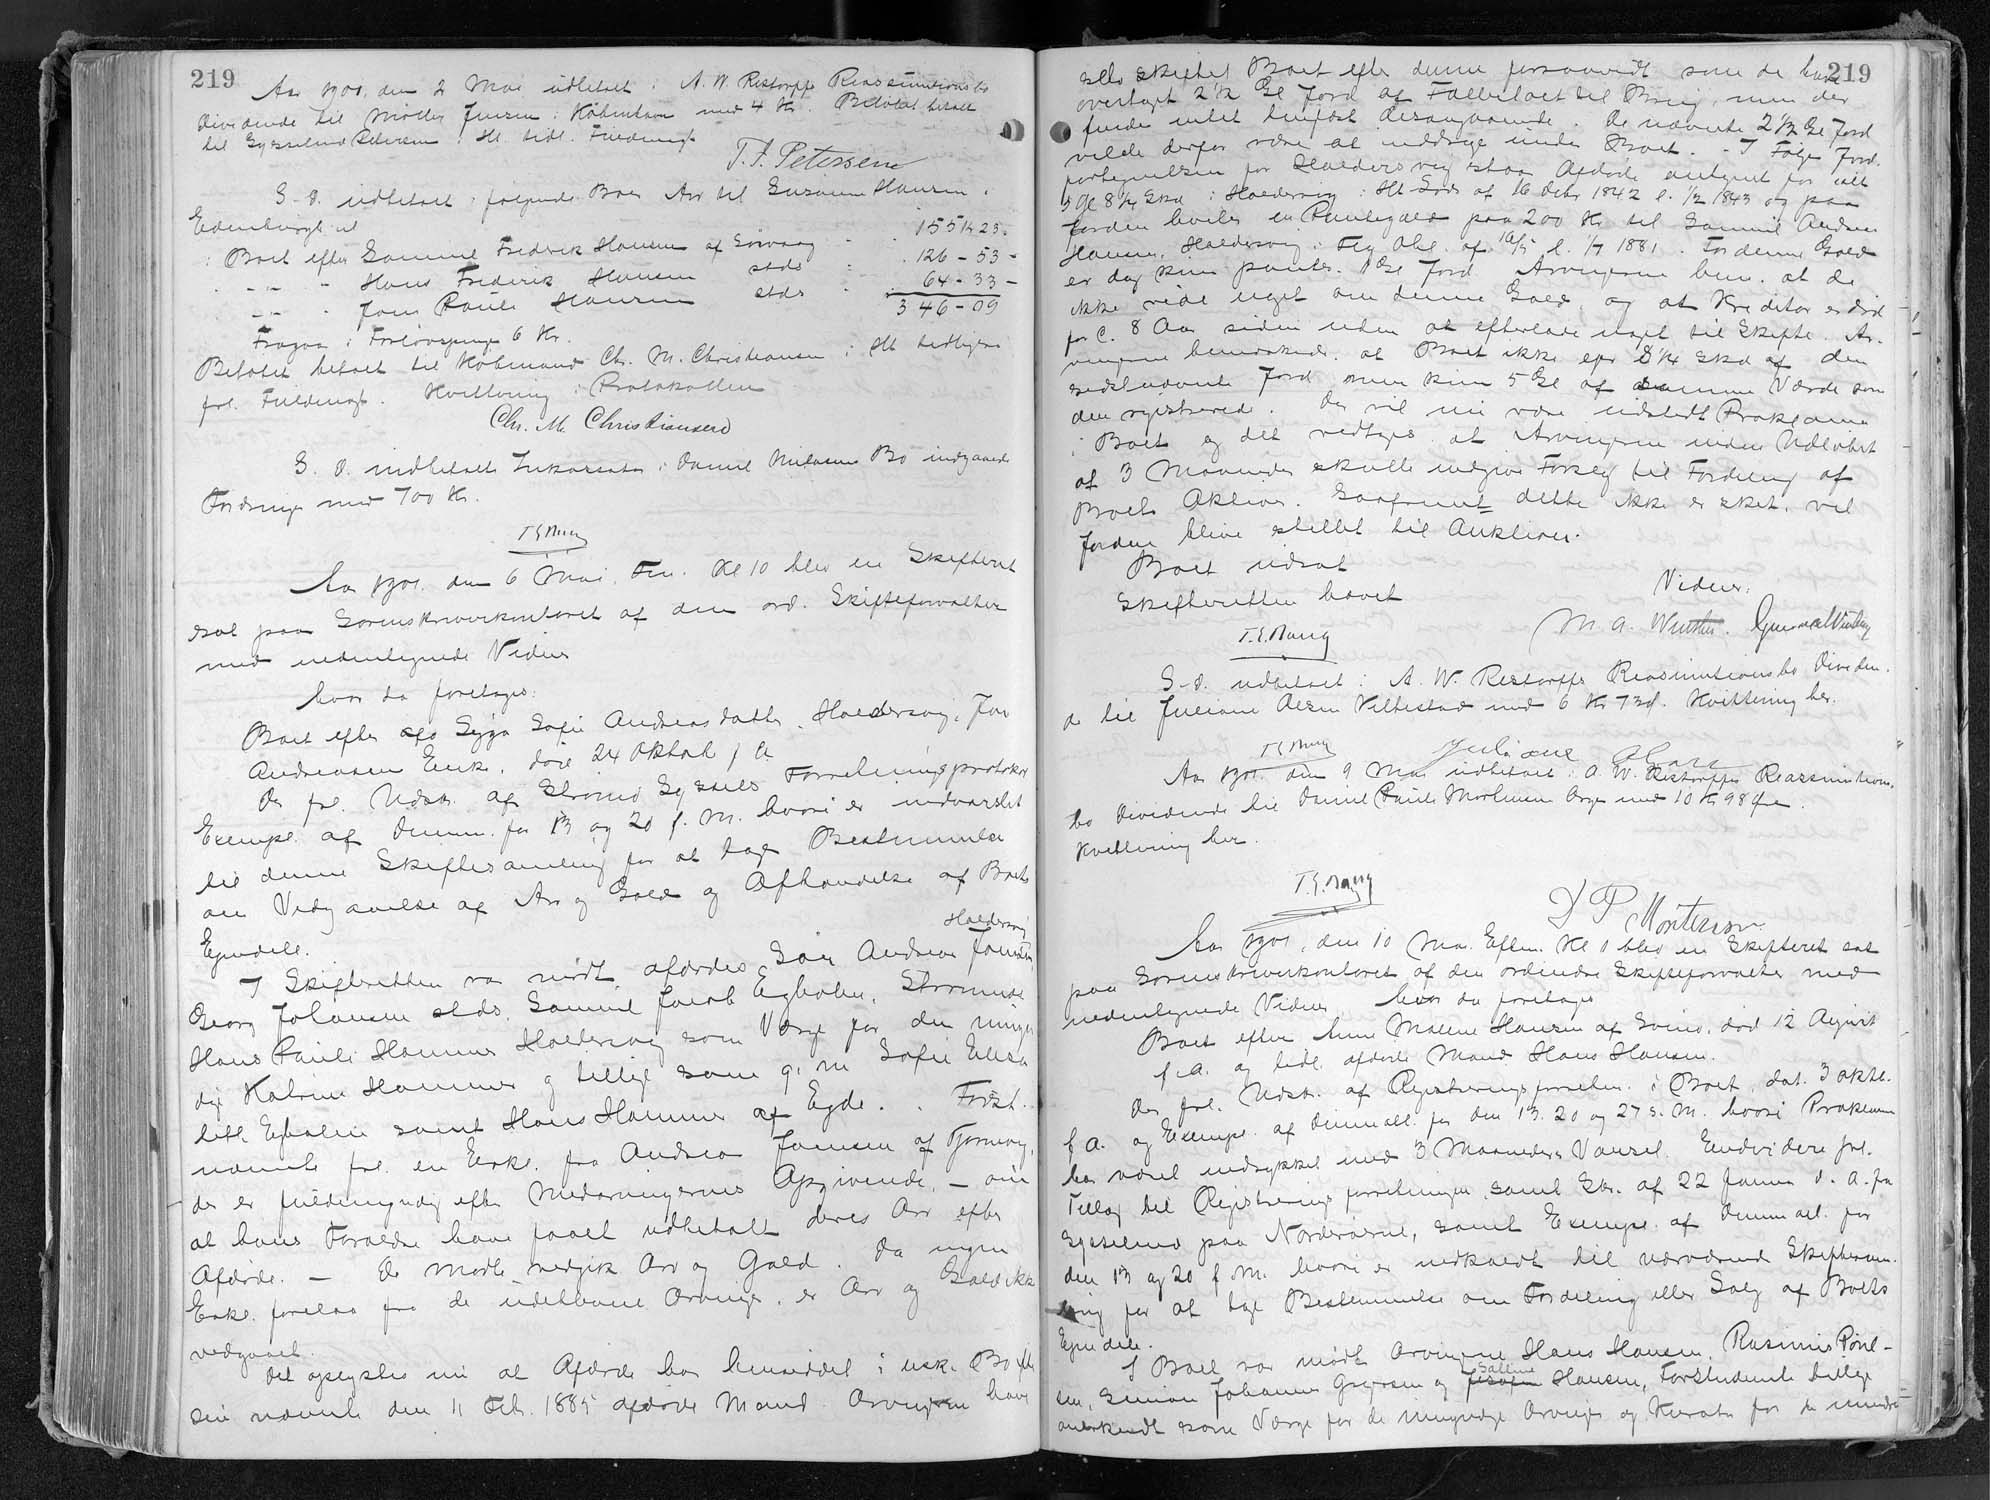 219
Aar 1901, den 2 Mai udbetalt i A. W. Restorffs Reassumtionsbo
Dividende til Møller Jensen i København med 4 Kr. Beløbet betalt
til Sysselmd Petersen i Hl. tidl. Fuldmagt
T. F. Petersen
S. D. udbetalt i følgende Boer Arv til Susanne Hansen,
Edenburgh
i Boet efter Sammel Fredrik Hansen af Sørvaag - . 155 Kr 23.
- - - Hans Frederik Hansen stds : . 126 - 53 -
- - - Jens Pauli Hansen stds - . 64 - 33 -
346 - 09
Fragaa i Forlovspenge 6 Kr.
Beløbet betalt til Købmand Chr. M. Christiansen i Hl tidligere
frl. Fuldmagt. Kvittering i Protokollen
Chr. M. Christiansen
S. D. indbetalt Inkassator i Daniel Nielsens Bo indgaaede
Fordringer med 700 Kr.
T.S. Bang
Aar 1901, den 6 Mai, Fm. Kl 10 blev en Skifteret
sat paa Sorenskriverkontoret af den ord. Skifteforvalter
med undertegnede Vidner
hvor da foretages:
Boet efter afd Sigga Sofie Andreasdatter, Haldersvig, Joen
Andreasens Enke, død 24 Oktob f A.
Der frl. Udskr. af Strømø Syssels Forretningsprotokol
Exempl. af Dimm. for 13 og 20 f. M. hvori er indvarslet
til denne Skiftesamling for at tage Bestemmelse
om Vedgaaelse af Arv og Gæld og Afhændelse af Boets
Ejendele.
I Skifteretten var mødt afdødes Søn Andreas Joensen Haldersvig
Georg Johansen stds, Samuel Jacob Egholm, Strømnæs
Hans Pauli Hammer Haldersvig som Værge for den umyn
dige Katrine Hammer og tillige som g. m Sofie Elisa
beth Egholm samt Hans Hammer af Ejde. . Først-
nævnte frl. en Erkl. fra Andreas Joensen af Tjørnevig,
der er fuldmyndig efter Medarvingernes Opgivende, - om
at hans Forældre have faaet udbetalt deres Arv efter
Afdøde. - De mødte vedgik Arv og Gæld. Da ingen
Erkl. forelaa fra de udeblevne Arvinger, er Arv og Gæld ikke
vedgaaet.
Det oplystes nu at Afdøde har hensiddet i usk. Bo efter
sin nævnte den 11 Feb. 1885 afdøde Mand. Arvingerne have
219
selv skiftet Boet efter denne forsaavidt som de have
overtaget 2 1/2 Gl Jord af Fælletsboet til Brug, men der
findes intet tinglæst desangaaende. De nævnte 2 1/2 Gl Jord
vilde derfor være at inddrage under Boet. - I Følge Jord-
fortegnelsen for Haldersvig staar Afdøde antegnet for ialt
5 Gl 8 1/4 Skd i Haldersvig i Hl Sds af 16 Oktbr 1842 l. 1/2 1843 og paa
Jorden hviler en Pantegæld paa 200 Kr til Samuel Andreas
Hansen, Haldersvig i Flg Obl. af 10/5 l. 1/7 1881. For denne Gæld
er dog kun pantes. 1 Gl Jord. Arvingerne bem. at de
ikke vide noget om denne Gæld, og at Kreditor er død
for c. 8 Aar siden uden at efterlade noget til Skifte. Ar-
vingerne bemærkede, at Boet ikke ejer 8 1/4 Skd af den
sidstnævnte Jord men kun 5 Gl af samme Værdi som
den registrerede. Der vil nu være udstedt Proklama
i Boet og det vedtoges at Arvingerne inden Udløbet
af 3 Maaneder skulle indgive Forslag til Fordeling af
Boets Aktiver. Saafremt dette ikke er sket, vil
Jorden blive stillet til Auktion.
Boet udsat
Skifteretten hævet
T.S. Bang
Vidner:
M A. Winther.
S. D. udbetalt i A. W. Restorffs Reassumtionsbo Dividen-
de til Juliane Olsen Veltestad med 6 Kr 73 Ø. Kvittering her.
T.S. Bang
Juliane Olsen
Aar 1901 den 9 Mai udbetalt i A. W. Restorffs Reassumtions-
bo Dividende til Daniel Pauli Mortensen Arge med 10 Kr 98 Øre.
Kvittering her.
T.S. Bang
D P Mortensen
Aar 1901, den 10 Mai. Eftm. Kl 1 blev en Skifteret sat
paa Sorenskriverkontoret af den ordinære Skifteforvalter med
undertegnede Vidner hvor da foretages
Boet efter Anne Malene Hansen af Svinø, død 12 August
f. A. og tidl. afdøde Mand Hans Hansen.
Der frl. Udskr. af Registreringsforretn. i Boet, dat. 3 Oktb.
f A. og Exempl. af Dimmalt. for den 13. 20 og 27 s. M. hvori Proklama
har været indrykket med 3 Maaneders Varsel. Endvidere frl.
Tillæg til Registreringsforretningen, samt Skr. af 22 Januar d. A. fra
Sysselmd paa Norderøerne, samt Exempl. af Dimmalt. for
den 13 og 20 f M. hvori er indkaldt til nærværende Skiftesam-
ling for at tage Bestemmelse om Fordeling eller Salg af Boets
Ejendele.
I Boet var mødt Arvingerne Hans Hansen, Rasmus Poul-
sen, Simon Johannes Gregersen og Sabine Hansen, Førstnævnte tillige
anerkendt som Værge for de umyndige Arvinger og Kurator for de mindre